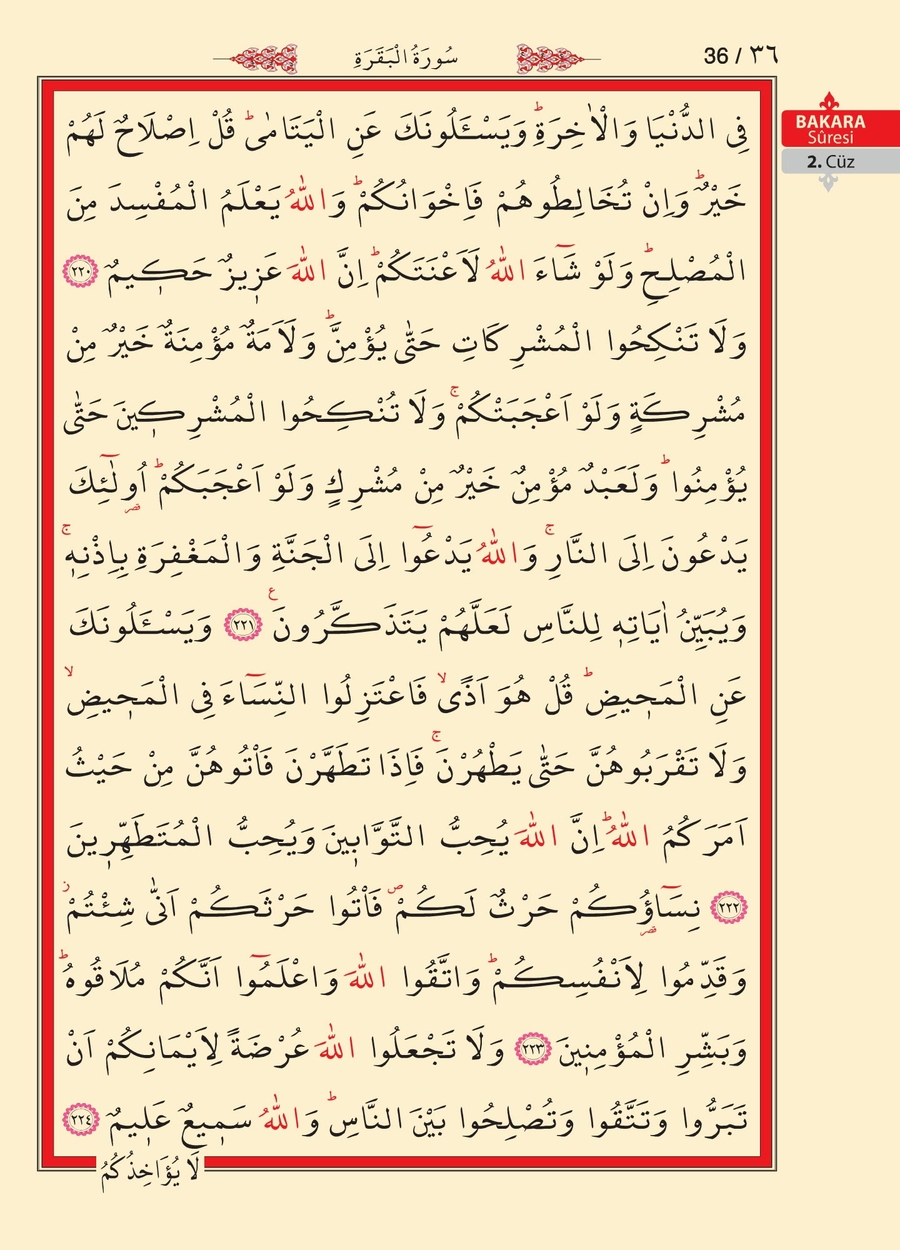 سُورَةُ الْبَقَرَةِ
36 / ٣٦
BAKARA
Sûresi
2. Cüz
فِى الدُّنْيَا وَالْاٰخِرَةِۜ وَيَسْـَٔلُونَكَ عَنِ الْيَتَامٰىۜ قُلْ اِصْلَاحٌ لَهُمْ
خَيْرٌۜ وَاِنْ تُخَالِطُوهُمْ فَاِخْوَانُكُمْۜ وَاللّٰهُ يَعْلَمُ الْمُفْسِدَ مِنَ
الْمُصْلِحِۜ وَلَوْ شَٓاءَ اللّٰهُ لَاَعْنَتَكُمْۜ اِنَّ اللّٰهَ عَزٖيزٌ حَكٖيمٌ ﴿٢٢٠﴾
وَلَا تَنْكِحُوا الْمُشْرِكَاتِ حَتّٰى يُؤْمِنَّۜ وَلَاَمَةٌ مُؤْمِنَةٌ خَيْرٌ مِنْ
مُشْرِكَةٍ وَلَوْ اَعْجَبَتْكُمْۚ وَلَا تُنْكِحُوا الْمُشْرِكٖينَ حَتّٰى
يُؤْمِنُواۜ وَلَعَبْدٌ مُؤْمِنٌ خَيْرٌ مِنْ مُشْرِكٍ وَلَوْ اَعْجَبَكُمْۜ اُو۬لٰٓئِكَ
يَدْعُونَ اِلَى النَّارِۚ وَاللّٰهُ يَدْعُٓوا اِلَى الْجَنَّةِ وَالْمَغْفِرَةِ بِاِذْنِهٖۚ
وَيُبَيِّنُ اٰيَاتِهٖ لِلنَّاسِ لَعَلَّهُمْ يَتَذَكَّرُونَ ع ﴿٢٢١﴾ وَيَسْـَٔلُونَكَ
عَنِ الْمَحٖيضِۜ قُلْ هُوَ اَذًىۙ فَاعْتَزِلُوا النِّسَٓاءَ فِى الْمَحٖيضِۙ
وَلَا تَقْرَبُوهُنَّ حَتّٰى يَطْهُرْنَۚ فَاِذَا تَطَهَّرْنَ فَأْتُوهُنَّ مِنْ حَيْثُ
اَمَرَكُمُ اللّٰهُۜ اِنَّ اللّٰهَ يُحِبُّ التَّوَّابٖينَ وَيُحِبُّ الْمُتَطَهِّرٖينَ
﴿٢٢٢﴾ نِسَٓاؤُ۬كُمْ حَرْثٌ لَكُمْۖ فَأْتُوا حَرْثَكُمْ اَنّٰى شِئْتُمْؗ
وَقَدِّمُوا لِاَنْفُسِكُمْۜ وَاتَّقُوا اللّٰهَ وَاعْلَمُٓوا اَنَّكُمْ مُلَاقُوهُۜ
وَبَشِّرِ الْمُؤْمِنٖينَ ﴿٢٢٣﴾ وَلَا تَجْعَلُوا اللّٰهَ عُرْضَةً لِاَيْمَانِكُمْ اَنْ
تَبَرُّوا وَتَتَّقُوا وَتُصْلِحُوا بَيْنَ النَّاسِۜ وَاللّٰهُ سَمٖيعٌ عَلٖيمٌ ﴿٢٢٤﴾
لَا يُؤَاخِذُكُمُ